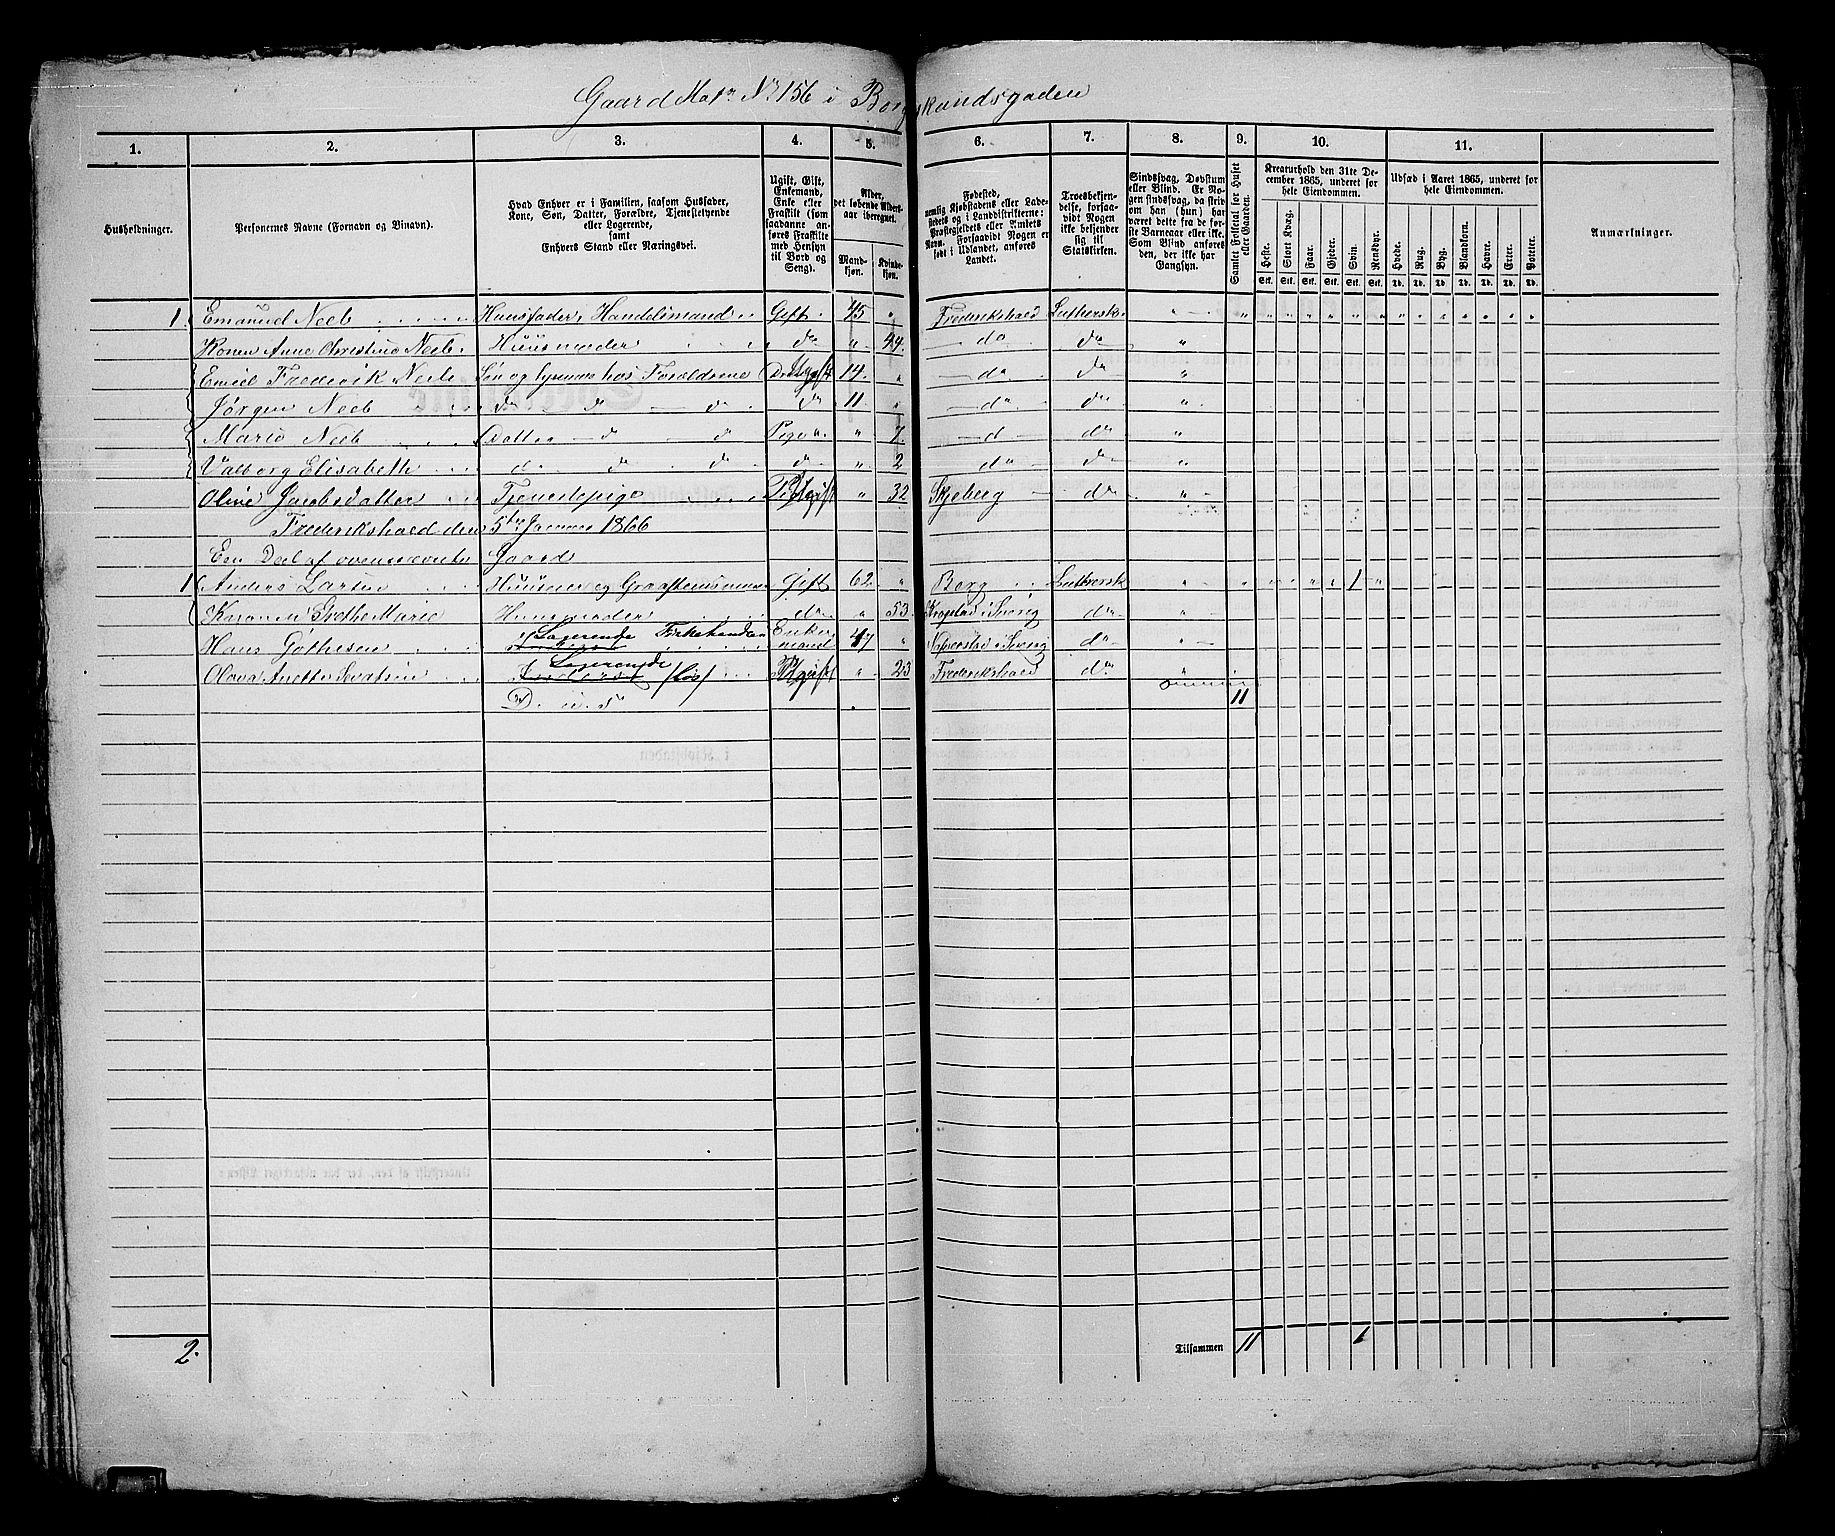 Gaard Matr No 156 i Borgskandsgaden
1. 2. 3. 4. 5. 6. 7. 8. 9. 10. 11.
Husholdninger.
Personernes Navne (Fornavn og Binavn).
Hvad Enhver er i Familien, saasom Husfader,
Kone, Søn, Datter, Forældre, Tjenestetyende
eller Logerende,
samt
Enhvers Stand eller Næringsvei.
Ugift, Gift,
Enkemand,
Enke eller
Fraskilt (som
saadanne an-
føres Fraskilte
med Hensyn
til Bord og
Seng).
Alder,
det løbende Alders-
aar iberegnet.
Mand-
kjøn.
Kvinde-
kjøn.
Fødested,
nemlig Kjøbstadens eller Lade-
stedets og i Landdistrikterne:
Præstegjeldets eller Amtets
Navn. Forsaavidt Nogen er
født i Udlandet, anføres
Landet.
Troesbekjen-
delse, forsaa-
vidt Nogen
ikke bekjender
sig til
Statskirken.
Sindssvag, Døvstum
eller Blind. Er No-
gen sindssvag, da skriv
om han (hun) har
været dette fra de før-
ste Barneaar eller ikke.
Som Blind anføres
den, der ikke har
Gangsyn.
Samlet Folketal for Huset
eller Gaarden.
Kreaturhold den 31te De-
cember 1865, underet for
hele Eiendommen.
Heste. Stort Kvæg. Faar. Gjeder. Svin. Rensdyr.
Stk. Stk. Stk. Stk. Stk. Stk.
Udsæd i Aaret 1865, underet for
hele Eiendommen.
Hvede. Rug. Byg. Blandkorn. Havre. Erter. Poteter.
Td. Td. Td. Td. Td. Td. Td.
Anmærkninger.
1. Emanuel Neeb Huusfader, Handelsmand Gift 45 " Frederikshald Luthersk " "
Konen Anne Christine Neeb Huusmoder do " 44 do do "
Emiel Frederik Neeb Søn og hos Forældrene Ugift 14 " do do "
Jørgen Neeb do do do do 11 " do do "
Marie Neeb Datter d d Pige " 7 d do "
Valborg Elisabeth d d d d " 2 do do "
Oline Jacobsdatter Tjenestepige Ugift " 32 Skjeberg do "
Frederikshald den 5te Januar 1866
Een Deel af ovennævnte Gaard
1 Anders Larsen Huuseier og Gift 62 " Borg Luthersk " " " " " 1 "
Konen Grethe Marie Huusmoder do " 53 i Sverig do "
Hans Gøthesen Logerende Enkemand 47 " i Sverig do "
Olava Anette Logerende Ugift " 23 Frederikshald do "
D. u. s 11
2. Tilsammen 11 1